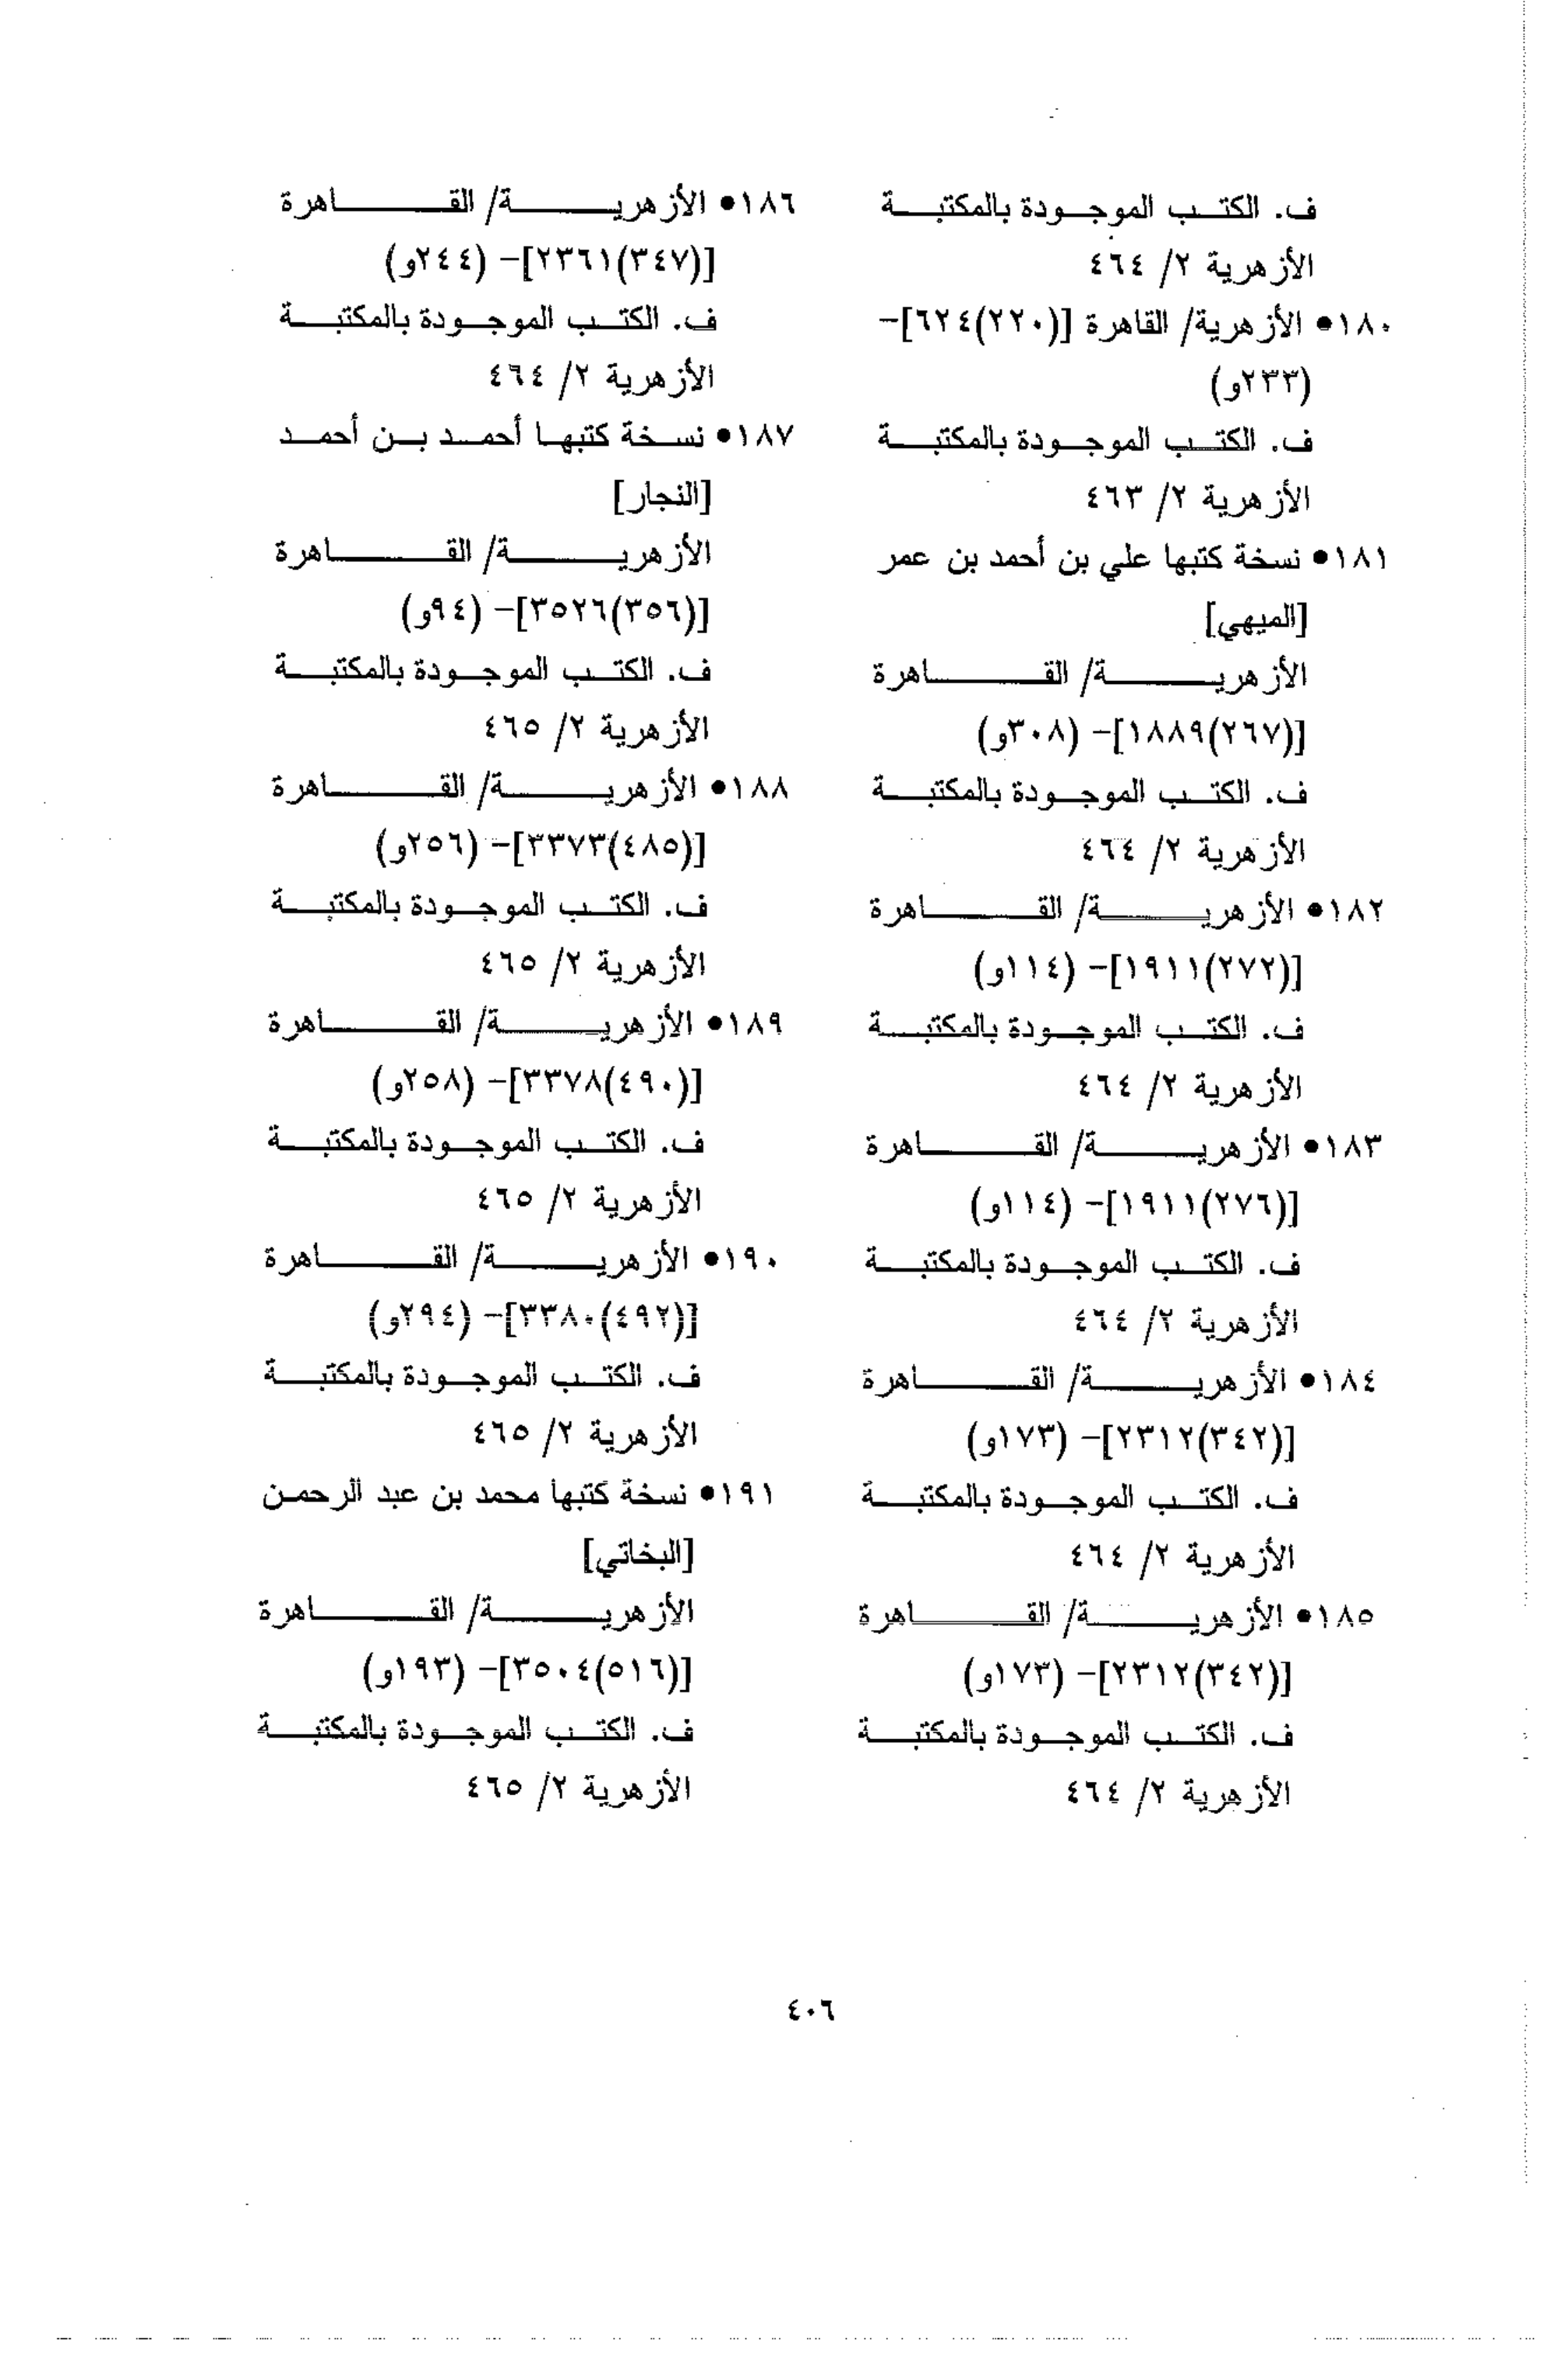 ف. الكتب الموجودة بالمكتبة
الأزهرية ٢/ ٤٦٤
١٨٠● الأزهرية/ القاهرة [(٢٢٠)٦٢٤]-
(٢٣٣و)
ف. الكتب الموجودة بالمكتبة
الأزهرية ٢/ ٤٦٣
١٨١● نسخة كتبها علي بن أحمد بن عمر
[الميهي]
الأزهرية/ القاهرة
[(٢٦٧)١٨٨٩]- (٣٠٨و)
ف. الكتب الموجودة بالمكتبة
الأزهرية ٢/ ٤٦٤
١٨٢● الأزهرية/ القاهرة
[(٢٧٢)١٩١١]- (١١٤و)
ف. الكتب الموجودة بالمكتبة
الأزهرية ٢/ ٤٦٤
١٨٣● الأزهرية/ القاهرة
[(٢٧٦)١٩١١]- (١١٤و)
ف. الكتب الموجودة بالمكتبة
الأزهرية ٢/ ٤٦٤
١٨٤● الأزهرية/ القاهرة
[(٣٤٢)٢٣١٢]- (١٧٣و)
ف. الكتب الموجودة بالمكتبة
الأزهرية ٢/ ٤٦٤
١٨٥● الأزهرية/ القاهرة
[(٣٤٢)٢٣١٢]- (١٧٣و)
ف. الكتب الموجودة بالمكتبة
الأزهرية ٢/ ٤٦٤
١٨٦● الأزهرية/ القاهرة
[(٣٤٧)٢٣٦١]- (٢٤٤و)
ف. الكتب الموجودة بالمكتبة
الأزهرية ٢/ ٤٦٤
١٨٧● نسخة كتبها أحمد بن أحمد
[النجار]
الأزهرية/ القاهرة
[(٣٥٦)٣٥٢٦]- (٩٤و)
ف. الكتب الموجودة بالمكتبة
الأزهرية ٢/ ٤٦٥
١٨٨● الأزهرية/ القاهرة
[(٤٨٥)٣٣٧٣]- (٢٥٦و)
ف. الكتب الموجودة بالمكتبة
الأزهرية ٢/ ٤٦٥
١٨٩● الأزهرية/ القاهرة
[(٤٩٠)٣٣٧٨]- (٢٥٨و)
ف. الكتب الموجودة بالمكتبة
الأزهرية ٢/ ٤٦٥
١٩٠● الأزهرية/ القاهرة
[(٤٩٢)٣٣٨٠]- (٢٩٤و)
ف. الكتب الموجودة بالمكتبة
الأزهرية ٢/ ٤٦٥
١٩١● نسخة كتبها محمد بن عبد الرحمن
[البخاتي]
الأزهرية/ القاهرة
[(٥١٦)٣٥٠٤]- (١٩٣و)
ف. الكتب الموجودة بالمكتبة
الأزهرية ٢/ ٤٦٥
٤٠٦